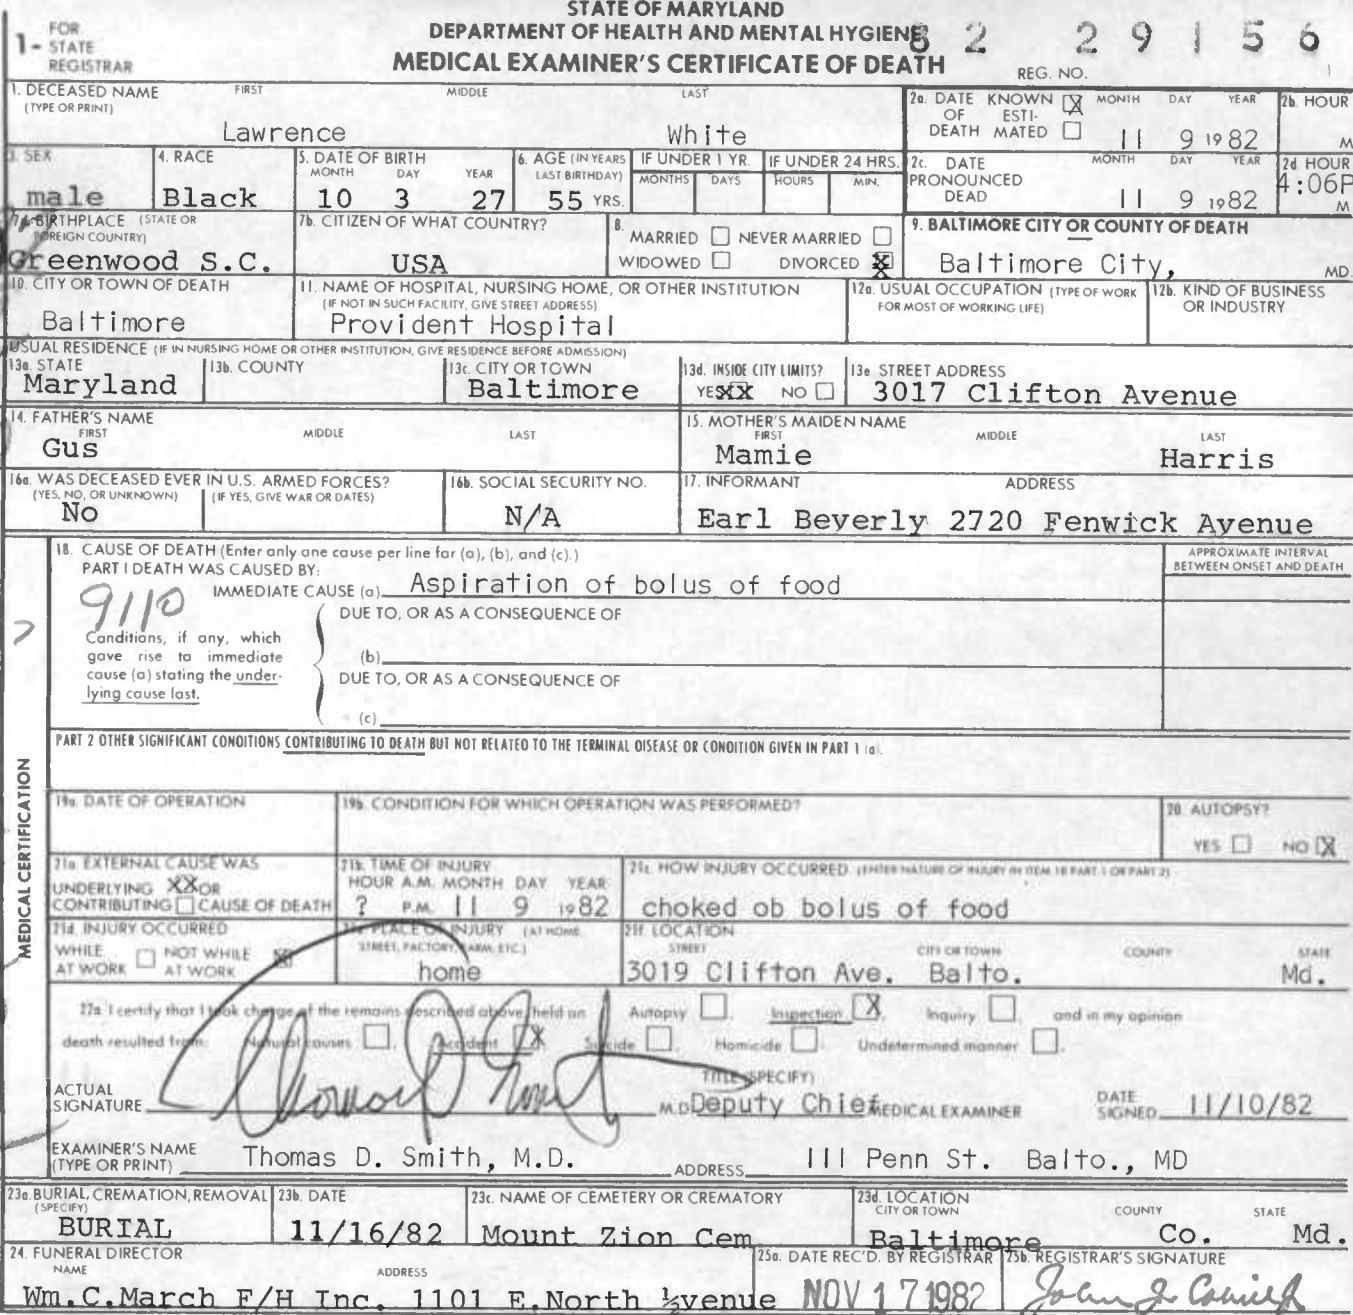 STATE OF MARYLAND
DEPARTMENT OF HEALTH AND MENTAL HYGIENE
MEDICAL EXAMINER'S CERTIFICATE OF DEATH
1- FOR STATE REGISTRAR
82 29156
REG. NO.
1. DECEASED NAME (TYPE OR PRINT) FIRST MIDDLE LAST
Lawrence White
2a. DATE OF DEATH KNOWN X ESTIMATED MONTH DAY YEAR 2b. HOUR
11 9 1982 M
3. SEX 4. RACE 5. DATE OF BIRTH MONTH DAY YEAR 6. AGE (IN YEARS LAST BIRTHDAY) IF UNDER 1 YR. MONTHS DAYS IF UNDER 24 HRS. HOURS MIN.
male Black 10 3 27 55 YRS.
2c. DATE PRONOUNCED DEAD MONTH DAY YEAR 2d HOUR
11 9 1982 4:06P M
7a. BIRTHPLACE (STATE OR FOREIGN COUNTRY) 7b. CITIZEN OF WHAT COUNTRY?
Greenwood S.C. USA
8. MARRIED NEVER MARRIED
WIDOWED DIVORCED X
9. BALTIMORE CITY OR COUNTY OF DEATH
Baltimore City, MD.
10. CITY OR TOWN OF DEATH
Baltimore
11. NAME OF HOSPITAL, NURSING HOME, OR OTHER INSTITUTION
(IF NOT IN SUCH FACILITY, GIVE STREET ADDRESS)
Provident Hospital
12a. USUAL OCCUPATION (TYPE OF WORK FOR MOST OF WORKING LIFE)
12b. KIND OF BUSINESS OR INDUSTRY
USUAL RESIDENCE (IF IN NURSING HOME OR OTHER INSTITUTION, GIVE RESIDENCE BEFORE ADMISSION)
13a. STATE 13b. COUNTY 13c. CITY OR TOWN 13d. INSIDE CITY LIMITS? 13e STREET ADDRESS
Maryland Baltimore YES XX NO 3017 Clifton Avenue
14. FATHER'S NAME FIRST MIDDLE LAST
Gus
15. MOTHER'S MAIDEN NAME FIRST MIDDLE LAST
Mamie Harris
16a. WAS DECEASED EVER IN U.S. ARMED FORCES?
(YES, NO, OR UNKNOWN) (IF YES, GIVE WAR OR DATES)
No
16b. SOCIAL SECURITY NO.
N/A
17. INFORMANT ADDRESS
Earl Beverly 2720 Fenwick Avenue
MEDICAL CERTIFICATION
18. CAUSE OF DEATH (Enter only one cause per line for (a), (b), and (c).)
PART I DEATH WAS CAUSED BY:
APPROXIMATE INTERVAL BETWEEN ONSET AND DEATH
IMMEDIATE CAUSE (a) Aspiration of bolus of food
9110
DUE TO, OR AS A CONSEQUENCE OF
Conditions, if any, which gave rise to immediate cause (a) stating the underlying cause last.
(b)
DUE TO, OR AS A CONSEQUENCE OF
(c)
PART 2 OTHER SIGNIFICANT CONDITIONS CONTRIBUTING TO DEATH BUT NOT RELATED TO THE TERMINAL DISEASE OR CONDITION GIVEN IN PART 1 (a).
19a. DATE OF OPERATION 19b. CONDITION FOR WHICH OPERATION WAS PERFORMED? 20. AUTOPSY?
YES NO X
21a. EXTERNAL CAUSE WAS
UNDERLYING XX OR
CONTRIBUTING CAUSE OF DEATH
21b. TIME OF INJURY
HOUR A.M. MONTH DAY YEAR
? P.M. 11 9 1982
21c. HOW INJURY OCCURRED (ENTER NATURE OF INJURY IN ITEM 18 PART 1 OR PART 2)
choked ob bolus of food
21d. INJURY OCCURRED
WHILE AT WORK NOT WHILE AT WORK
21e. PLACE OF INJURY (AT HOME, STREET, FACTORY, FARM, ETC.)
home
21f. LOCATION STREET CITY OR TOWN COUNTY STATE
3019 Clifton Ave. Balto. Md.
22a. I certify that I took charge of the remains described above, held an Autopsy Inspection X, Inquiry and in my opinion
death resulted from: Natural causes, Accident X, Suicide, Homicide, Undetermined manner.
ACTUAL SIGNATURE
TITLE (SPECIFY)
M.D. Deputy Chief MEDICAL EXAMINER
DATE SIGNED 11/10/82
EXAMINER'S NAME (TYPE OR PRINT) Thomas D. Smith, M.D. ADDRESS 111 Penn St. Balto., MD
23a. BURIAL, CREMATION, REMOVAL (SPECIFY) 23b. DATE 23c. NAME OF CEMETERY OR CREMATORY 23d. LOCATION CITY OR TOWN COUNTY STATE
BURIAL 11/16/82 Mount Zion Cem Baltimore Co. Md.
24. FUNERAL DIRECTOR NAME ADDRESS
Wm.C.March F/H Inc. 1101 E.North ½venue
25a. DATE REC'D. BY REGISTRAR
NOV 17 1982
25b. REGISTRAR'S SIGNATURE